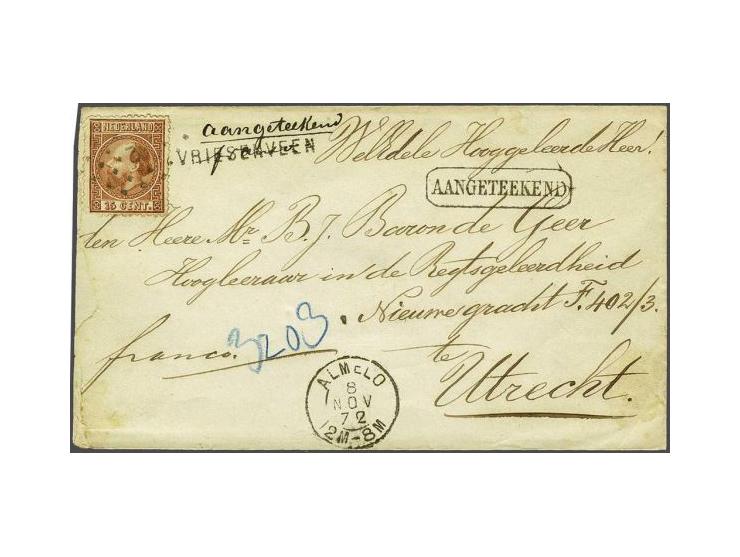 NEDERLAND
15 CENT.
aangeteekend
VRIESENVEEN
WelEdele Hooggeleerde Heer!
AANGETEEKEND
den Heere Mr. B. J. Baron de Geer
Hoogleeraar in de Regtsgeleerdheid
Nieuwegracht F. 402/3.
3203
franco.
te
Uttrecht.
ALMELO
8
NOV
72
12M-8M